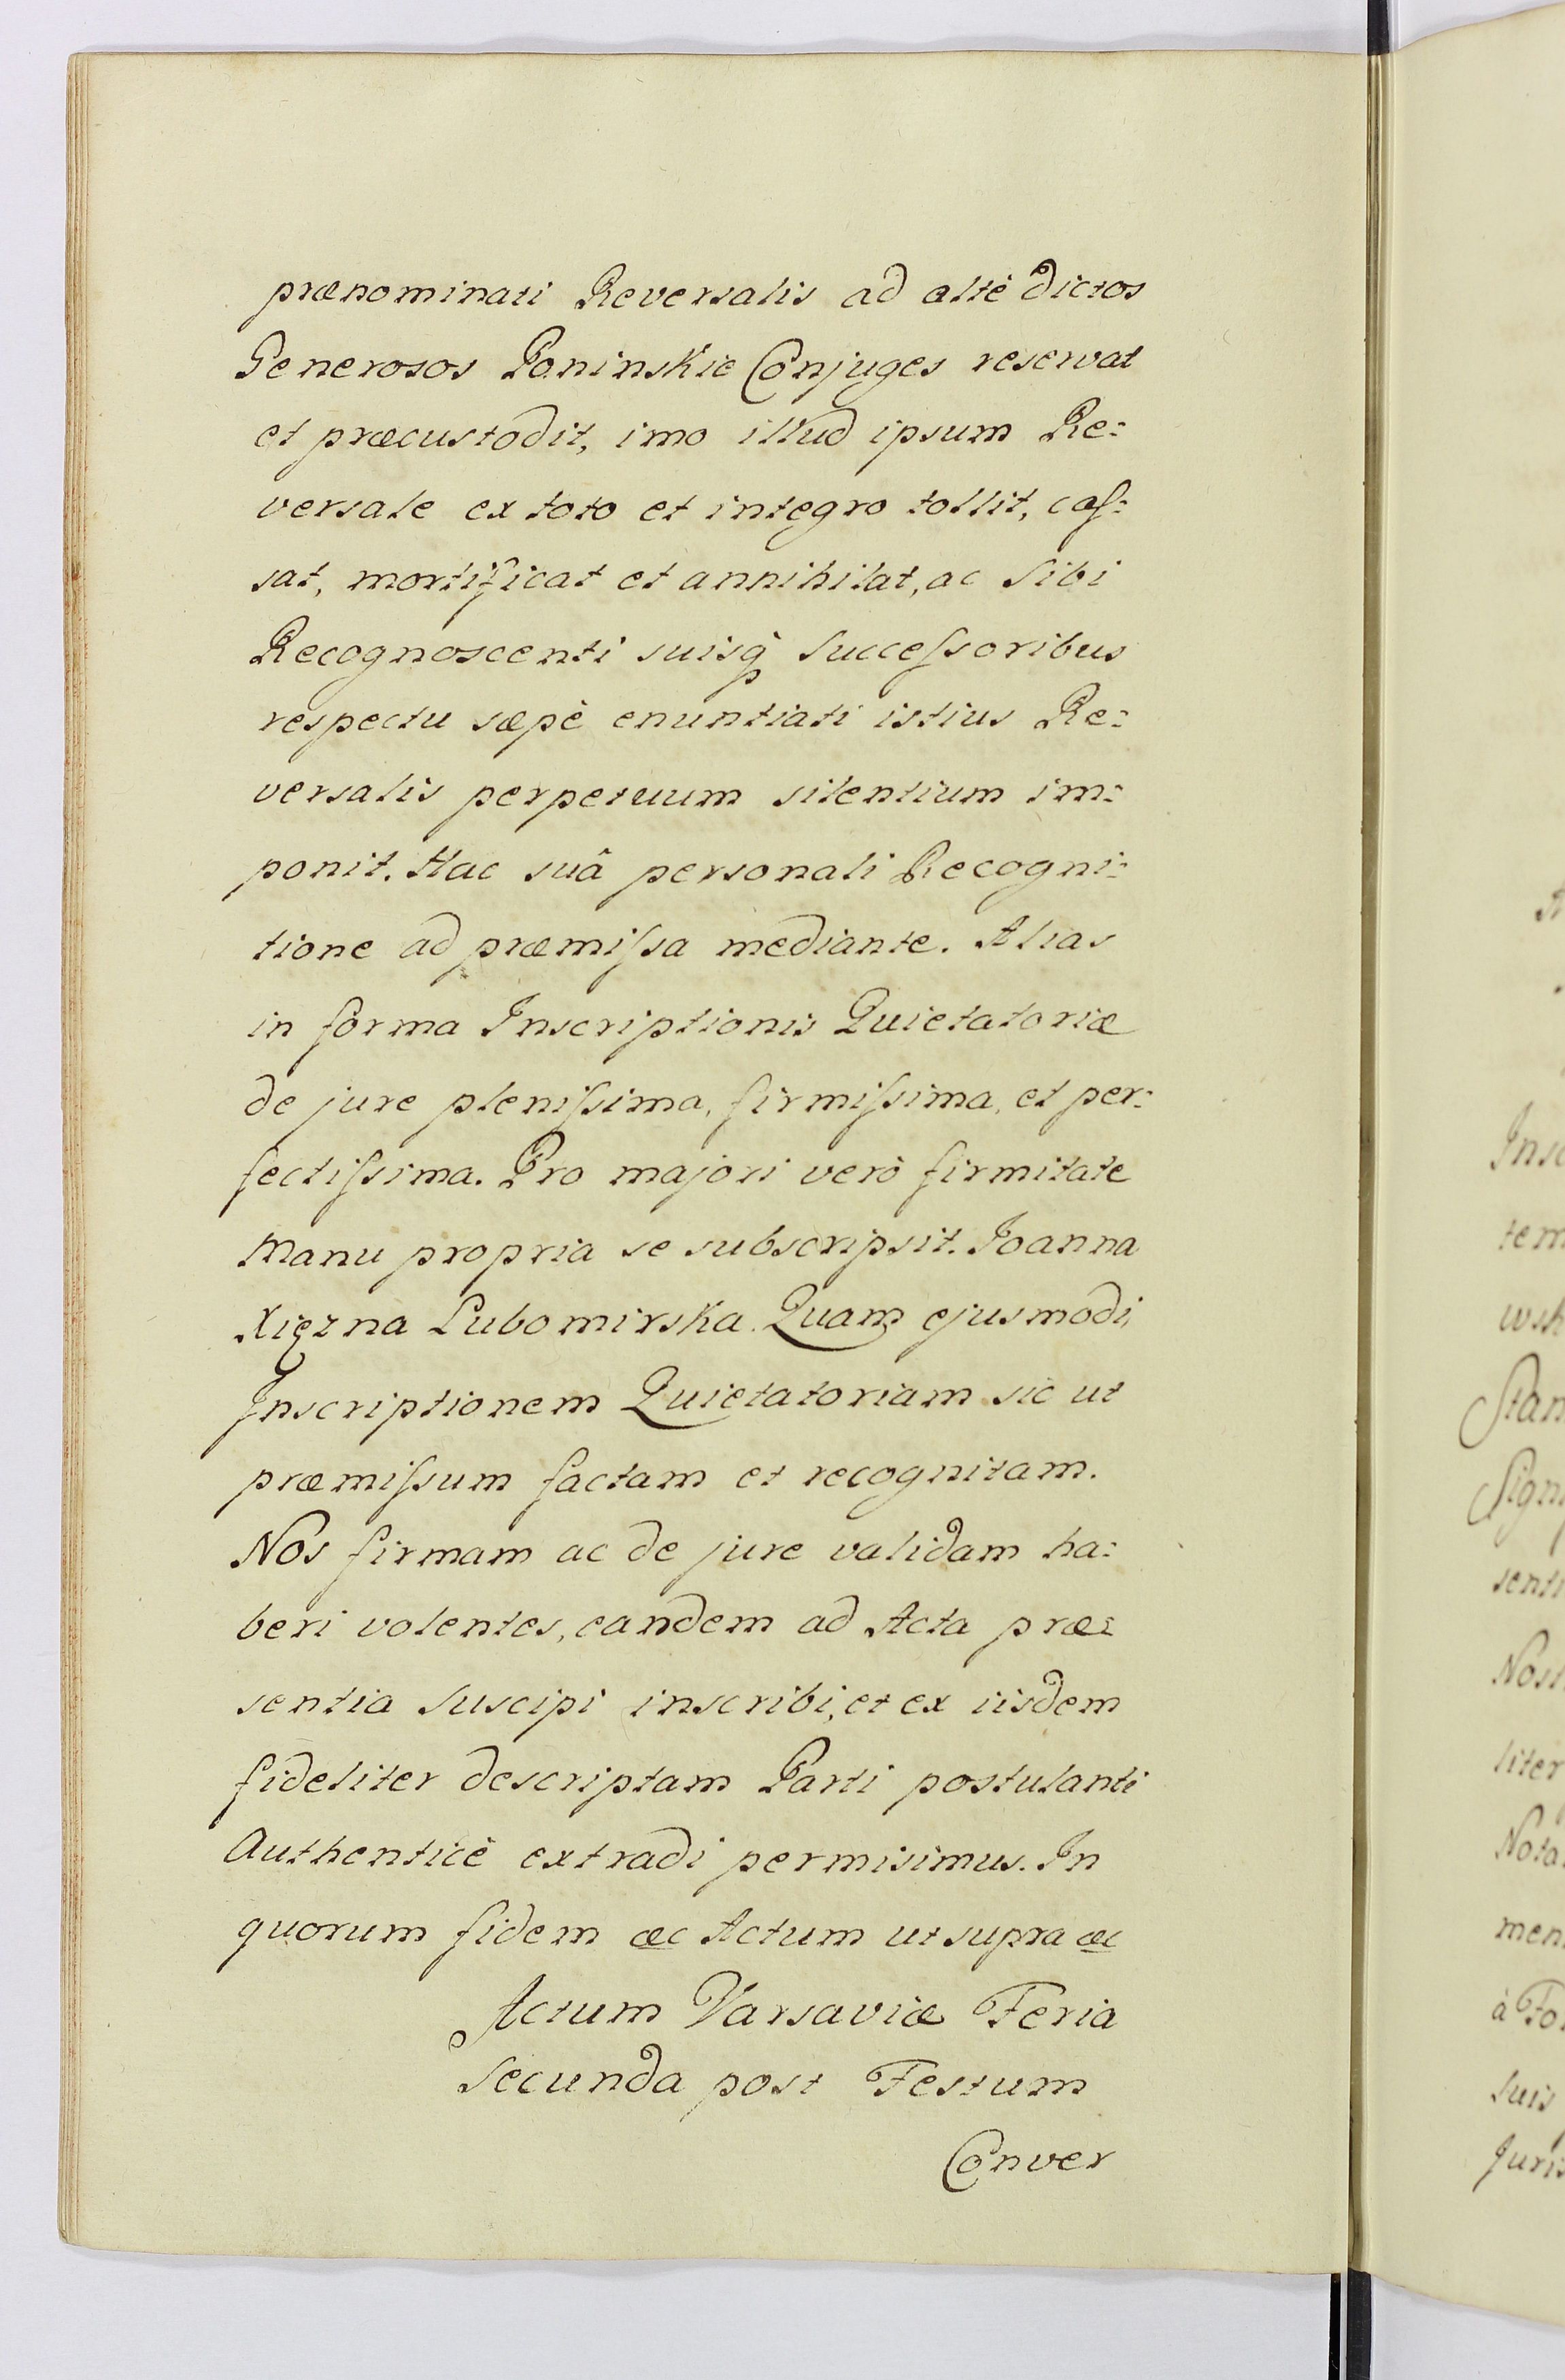 prænominati Reversalis ad altè dictos
Generosos Poninskie Conjuges reservat
et præcustodit, imo illud ipsum Re:
versale ex toto et integro tollit, caſ:
sat, mortificat et annihilat, ac Sibi
Recognoscenti suisq̀ Succeſsoribus
respectu sæpè enuntiati istius Re:
versalis perpetuum silentium im:
ponit. Hac suâ personali Recogni:
tione ad præmiſsa mediante. Alias
in forma Inscriptionis Quietatoriæ
de jure pleniſsima, firmiſsima, et per:
fectiſsima. Pro majori verò firmitate
Manu propria se subscripsit. Joanna
Xięzna Lubomirska. Quam ejusmodi
Inscriptionem Quietatoriam sic ut
præmiſsum factam et recognitam.
Nos firmam ac de jure validam ha:
beri volentes, eandem ad Acta præ:
sentia Suscipi inscribi, et ex iisdem
fideliter descriptam Parti postulanti
Authenticè extradi permisimus. In
quorum fidem æc Actum ut supra æc
Actum Varsaviæ Feria
Secunda post Festum
Conver
Insc
tem
wsk
Stan
Sign
senti
Nos
liter
Nota
men
à Fo
suis
Juris